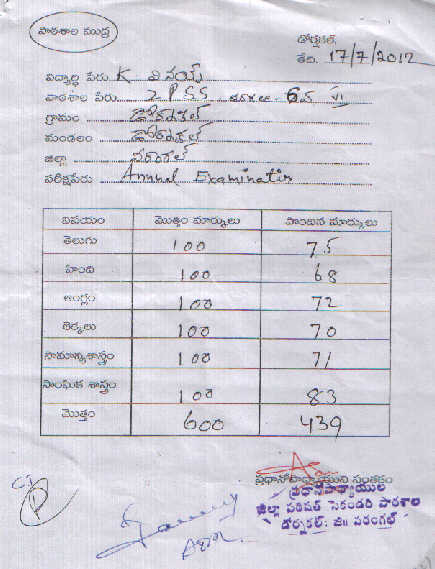 పాఠశాల ముద్ర
డోర్నకల్
తేది. 17/7/2012
విద్యార్థి పేరు K వినయ్
పాఠశాల పేరు 2PSS తరగతి 6వ VI
గ్రామం డోర్నకల్
మండలం డోర్నకల్
జిల్లా వరంగల్
పరీక్షపేరు Annual Examination
విషయం మొత్తం మార్కులు పొందిన మార్కులు
తెలుగు 100 75
హింది 100 68
ఆంగ్లం 100 72
లెక్కలు 100 70
సామాన్యశాస్త్రం 100 71
సాంఘిక శాస్త్రం 100 83
మొత్తం 600 439
ప్రధానోపాధ్యాయుని సంతకం
ప్రధానోపాధ్యాయుల
జిల్లా పరిషత్ సెకండరి పాఠశాల
డోర్నకల్: జిll వరంగల్